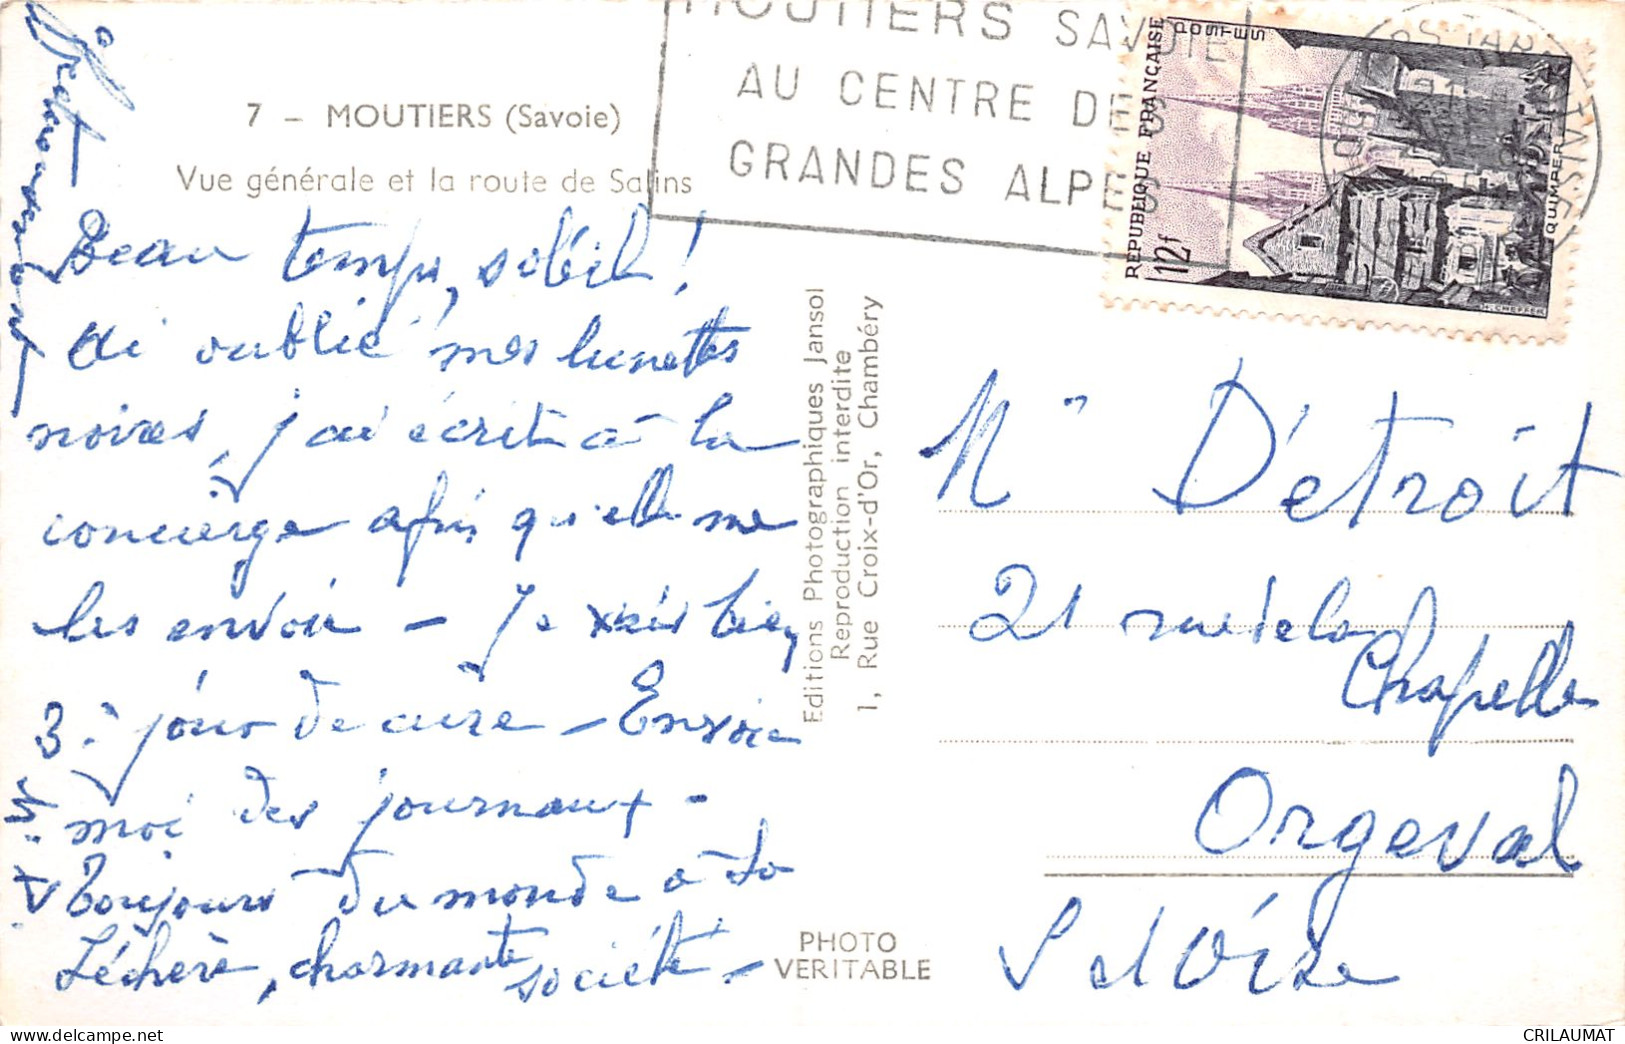 7 – MOUTIERS (Savoie)
Vue générale et la route de Salins
MOUTIERS SAVOIE
AU CENTRE DE
GRANDES ALPE
POSTES
REPUBLIQUE FRANÇAISE
12f
QUIMPER
H. CHEFFER
Beau temps, soleil!
Ai oublié mes lunettes
noires, j'ai écrit à la
concierge afin qu'elle me
les envoie – Je suis bien
3è jour de cure – Envoie
moi des journaux –
Toujours du monde à La
Léchère, charmante société –
Editions Photographiques Jansol
Reproduction interdite
1, Rue Croix-d'Or, Chambéry
PHOTO
VERITABLE
M Détroit
21 rue de la
Chapelle
Orgeval
S et Oise
CRILAUMAT